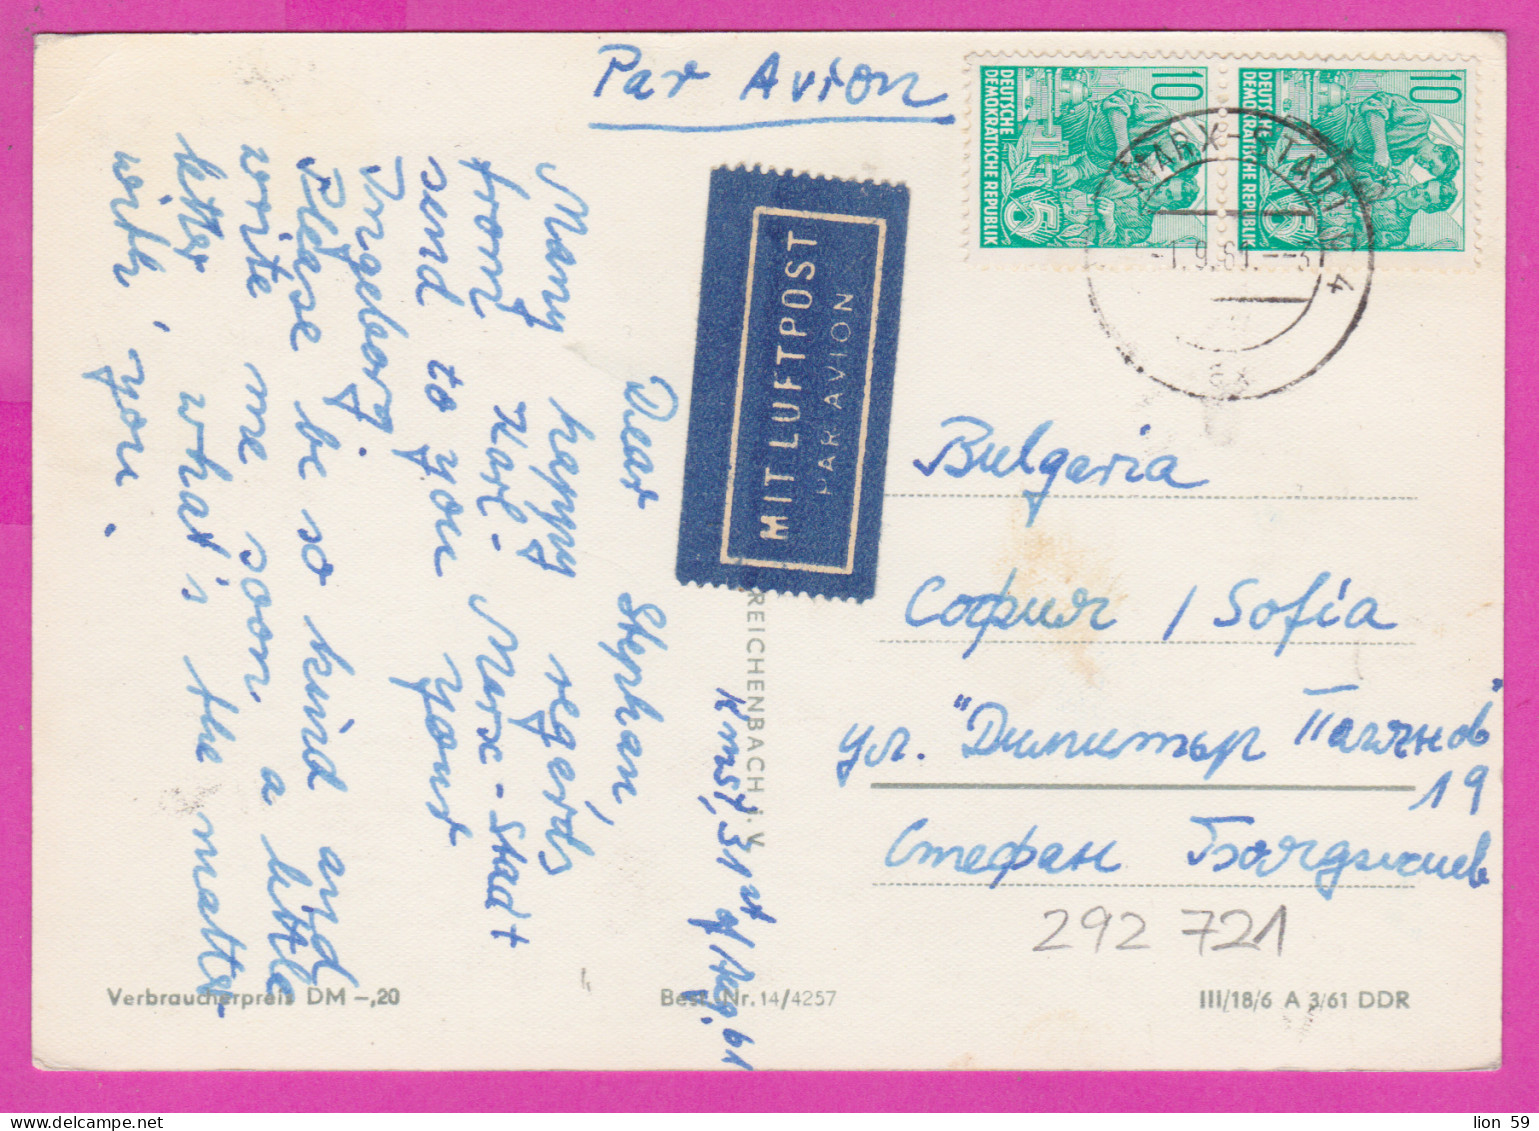 Par Avion
10
DEUTSCHE
DEMOKRATISCHE REPUBLIK
5
10
DEUTSCHE
DEMOKRATISCHE REPUBLIK
5
MARX-STADT C 4
-1.9.61.--3
MIT LUFTPOST
PAR AVION
Kmst, 31st of Aug. 61
Dear Stephan,
Many happy regards
from Karl-Marx-Stadt
send to you your
Ingeborg.
Please be so kind and
write me soon, a little
letter, what's the matter
with you.
Bulgaria
София / Sofia
ул. "Димитър
19
Стефан Бояджиев
292 721
REICHENBACH i. V.
Verbraucherpreis DM -,20
Best. Nr. 14/4257
III/18/6 A 3/61 DDR
lion 59